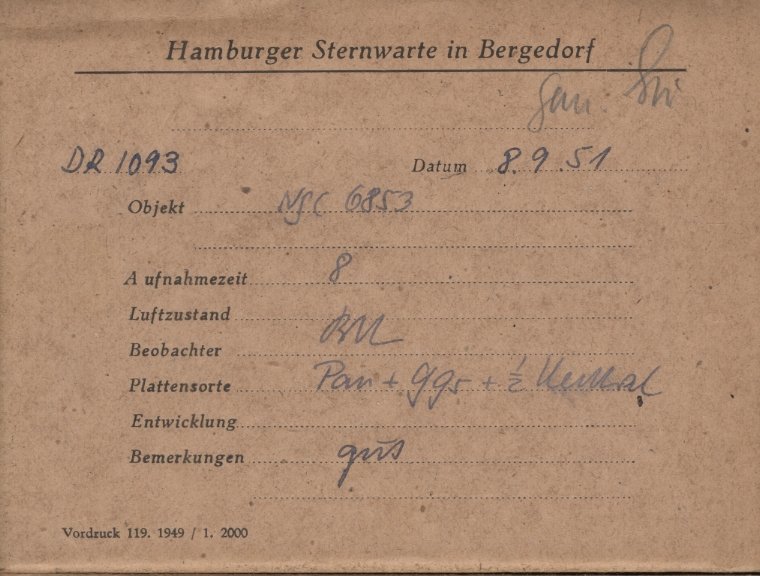 Hamburger Sternwarte in Bergedorf
DR 1093 Datum 8.9.51
Objekt NGC 6853
Aufnahmezeit 8
Luftzustand
Beobachter
Plattensorte Pan + gg5 + 1/2 Neutral
Entwicklung
Bemerkungen gut
Vordruck 119. 1949 / 1. 2000